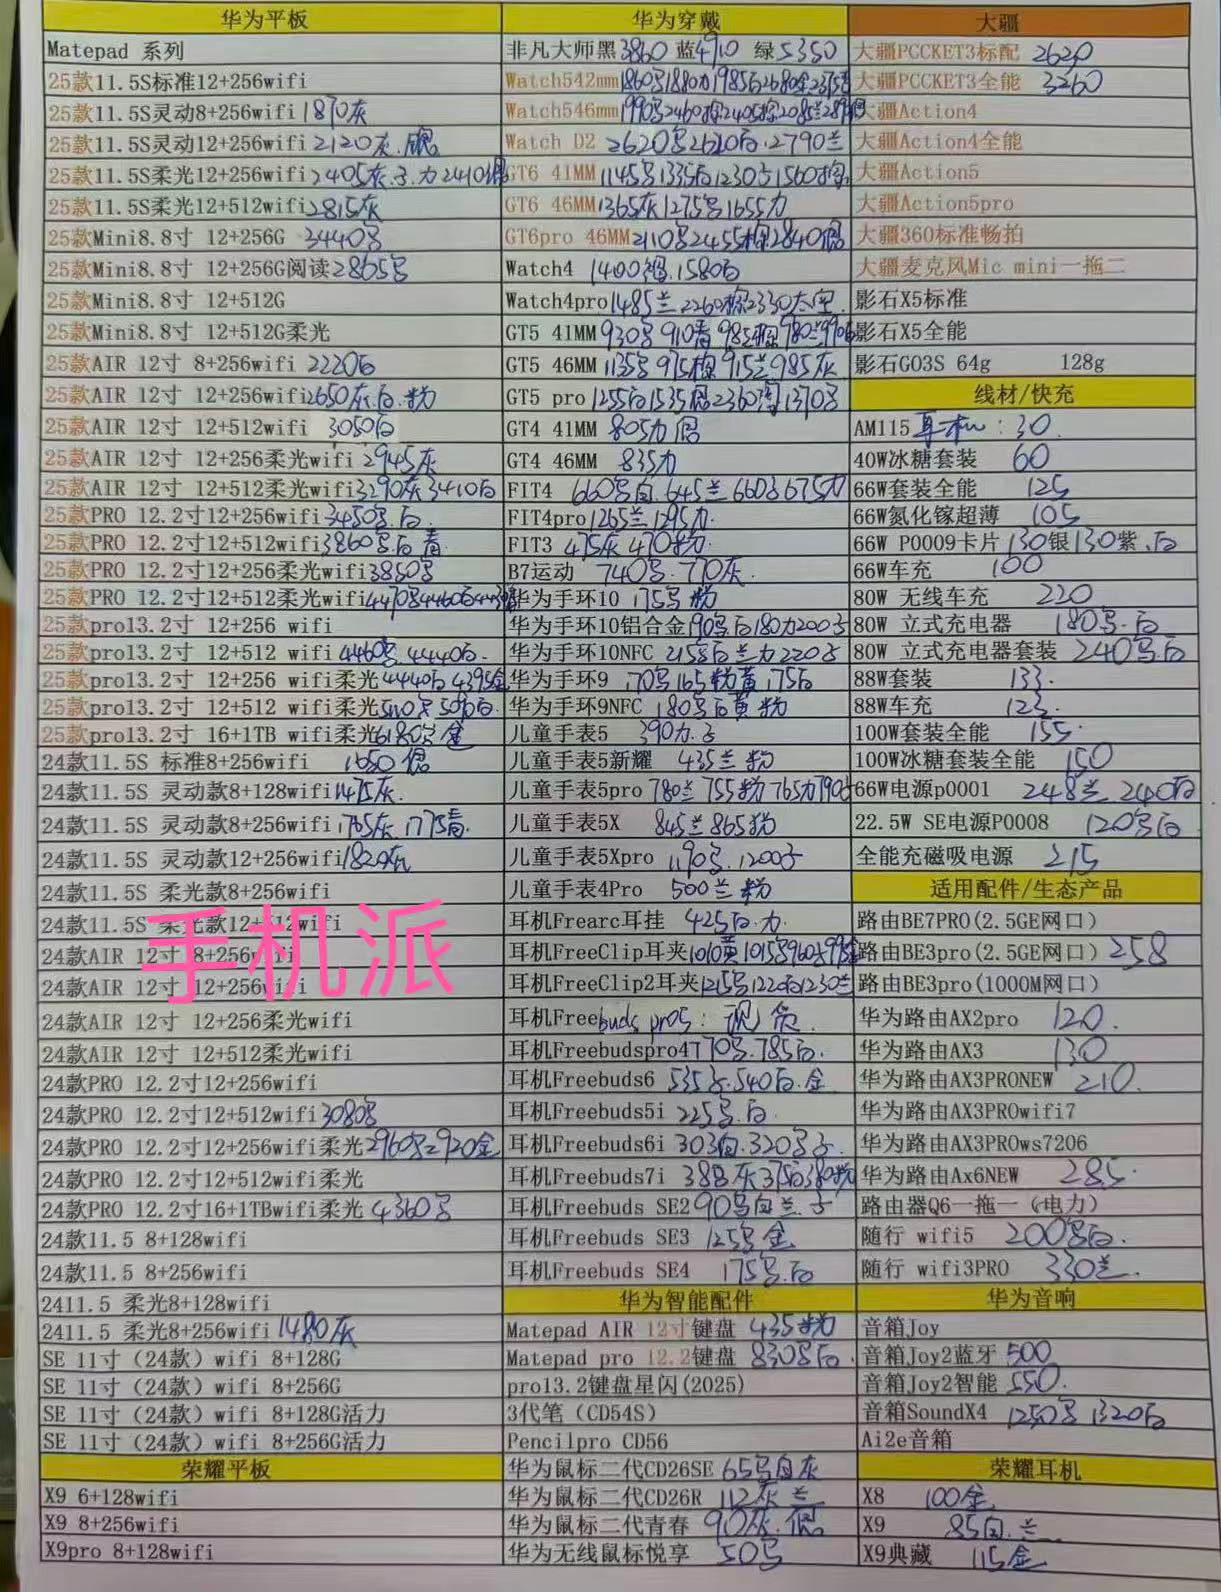 华为平板
Matepad 系列
25款11.5S标准12+256wifi
25款11.5S灵动8+256wifi 1870灰
25款11.5S灵动12+256wifi 2120灰.
25款11.5S柔光12+256wifi 2405灰.子.力 2410
25款11.5S柔光12+512wifi 2815灰
25款Mini8.8寸 12+256G 3440号
25款Mini8.8寸 12+256G阅读 2865号
25款Mini8.8寸 12+512G
25款Mini8.8寸 12+512G柔光
25款AIR 12寸 8+256wifi 2220白
25款AIR 12寸 12+256wifi 2650灰.白.粉
25款AIR 12寸 12+512wifi 3050白
25款AIR 12寸 12+256柔光wifi 2945灰
25款AIR 12寸 12+512柔光wifi 3290灰 3410白
25款PRO 12.2寸12+256wifi 3450号.白.
25款PRO 12.2寸12+512wifi 3860号白 青.
25款PRO 12.2寸12+256柔光wifi 3850号
25款PRO 12.2寸12+512柔光wifi 4470号4460白
25款pro13.2寸 12+256 wifi
25款pro13.2寸 12+512 wifi 4460号 4440白.
25款pro13.2寸 12+256 wifi柔光 4440白 4395金
25款pro13.2寸 12+512 wifi柔光
25款pro13.2寸 16+1TB wifi柔光 6180号 金
24款11.5S 标准8+256wifi 1650
24款11.5S 灵动款8+128wifi 1475灰.
24款11.5S 灵动款8+256wifi 1765灰 1775青.
24款11.5S 灵动款12+256wifi 1820灰
24款11.5S 柔光款8+256wifi
24款11.5S 柔光款12+512wifi
24款AIR 12寸 8+256wifi
24款AIR 12寸 12+256wifi
手机派
24款AIR 12寸 12+256柔光wifi
24款AIR 12寸 12+512柔光wifi
24款PRO 12.2寸12+256wifi
24款PRO 12.2寸12+512wifi 3080号
24款PRO 12.2寸12+256wifi柔光 2960号 2920金
24款PRO 12.2寸12+512wifi柔光
24款PRO 12.2寸16+1TBwifi柔光 4360号
24款11.5 8+128wifi
24款11.5 8+256wifi
2411.5 柔光8+128wifi
2411.5 柔光8+256wifi 1480灰
SE 11寸（24款）wifi 8+128G
SE 11寸（24款）wifi 8+256G
SE 11寸（24款）wifi 8+128G活力
SE 11寸（24款）wifi 8+256G活力
荣耀平板
X9 6+128wifi
X9 8+256wifi
X9pro 8+128wifi
华为穿戴
非凡大师黑3860 蓝4910 绿5350
Watch542mm 1860号1880力1985白2680金
Watch546mm 1990号2460棕
Watch D2 2620号2610白.2790兰
GT6 41MM 1145号1335白1230子1560棕
GT6 46MM 1365灰1275号1655力
GT6pro 46MM 2110号2455棕2840
Watch4 1400棕.1580白
Watch4pro 1485兰 2260棕2330太空.
GT5 41MM 930号 910青
GT5 46MM 1135号 975棕 915兰 985灰
GT5 pro 1255白1535 2360陶1370号
GT4 41MM 805力
GT4 46MM 835力
FIT4 660号白.645兰 660子675力
FIT4pro 1265兰1295力.
FIT3 475灰 470粉.
B7运动 740号.770灰.
华为手环10 175号 粉
华为手环10铝合金 190号白180力200子
华为手环10NFC 215号白兰力220子
华为手环9 170号165粉黄 175白
华为手环9NFC 180号白黄 粉
儿童手表5 390力.子
儿童手表5新耀 435兰 粉
儿童手表5pro 780兰 755粉765力790子
儿童手表5X 845兰865粉
儿童手表5Xpro 1190号.1200子
儿童手表4Pro 500兰 粉
耳机Frearc耳挂 425白.力.
耳机FreeClip耳夹1010黄1015号960子995金
耳机FreeClip2耳夹1215号1220白1230兰
耳机Freebuds pro5：现1条.
耳机Freebudspro4 770号.785白.
耳机Freebuds6 535子.540白.金
耳机Freebuds5i 225号.白.
耳机Freebuds6i 303白.320号子
耳机Freebuds7i 388灰375白380粉
耳机Freebuds SE2 90号白兰 子
耳机Freebuds SE3 125号金
耳机Freebuds SE4 175号.白
华为智能配件
Matepad AIR 12寸键盘 435粉
Matepad pro 12.2键盘 830号白.
pro13.2键盘星闪(2025)
3代笔（CD54S）
Pencilpro CD56
华为鼠标二代CD26SE 65号白灰
华为鼠标二代CD26R 112灰 兰
华为鼠标二代青春 90灰.
华为无线鼠标悦享 50号
大疆
大疆PCCKET3标配 2620
大疆PCCKET3全能 3260
大疆Action4
大疆Action4全能
大疆Action5
大疆Action5pro
大疆360标准畅拍
大疆麦克风Mic mini一拖二
影石X5标准
影石X5全能
影石GO3S 64g 128g
线材/快充
AM115 耳机：30
40W冰糖套装 60
66W套装全能 125
66W氮化镓超薄 105
66W P0009卡片 130银130紫.白
66W车充 100
80W 无线车充 220
80W 立式充电器 180号.白
80W 立式充电器套装 240号白
88W套装 133.
88W车充 123.
100W套装全能 155.
100W冰糖套装全能 150
66W电源p0001 248兰 240白
22.5W SE电源P0008 120号白
全能充磁吸电源 215
适用配件/生态产品
路由BE7PRO(2.5GE网口)
路由BE3pro(2.5GE网口) 258
路由BE3pro(1000M网口)
华为路由AX2pro 120.
华为路由AX3 130
华为路由AX3PRONEW 210.
华为路由AX3PROwifi7
华为路由AX3PROws7206
华为路由Ax6NEW 285.
路由器Q6一拖一（电力）
随行 wifi5 200号白.
随行 wifi3PRO 330兰.
华为音响
音箱Joy
音箱Joy2蓝牙 500
音箱Joy2智能 550.
音箱SoundX4 1250号 1320白
Ai2e音箱
荣耀耳机
X8 100金
X9 85白.兰
X9典藏 115金